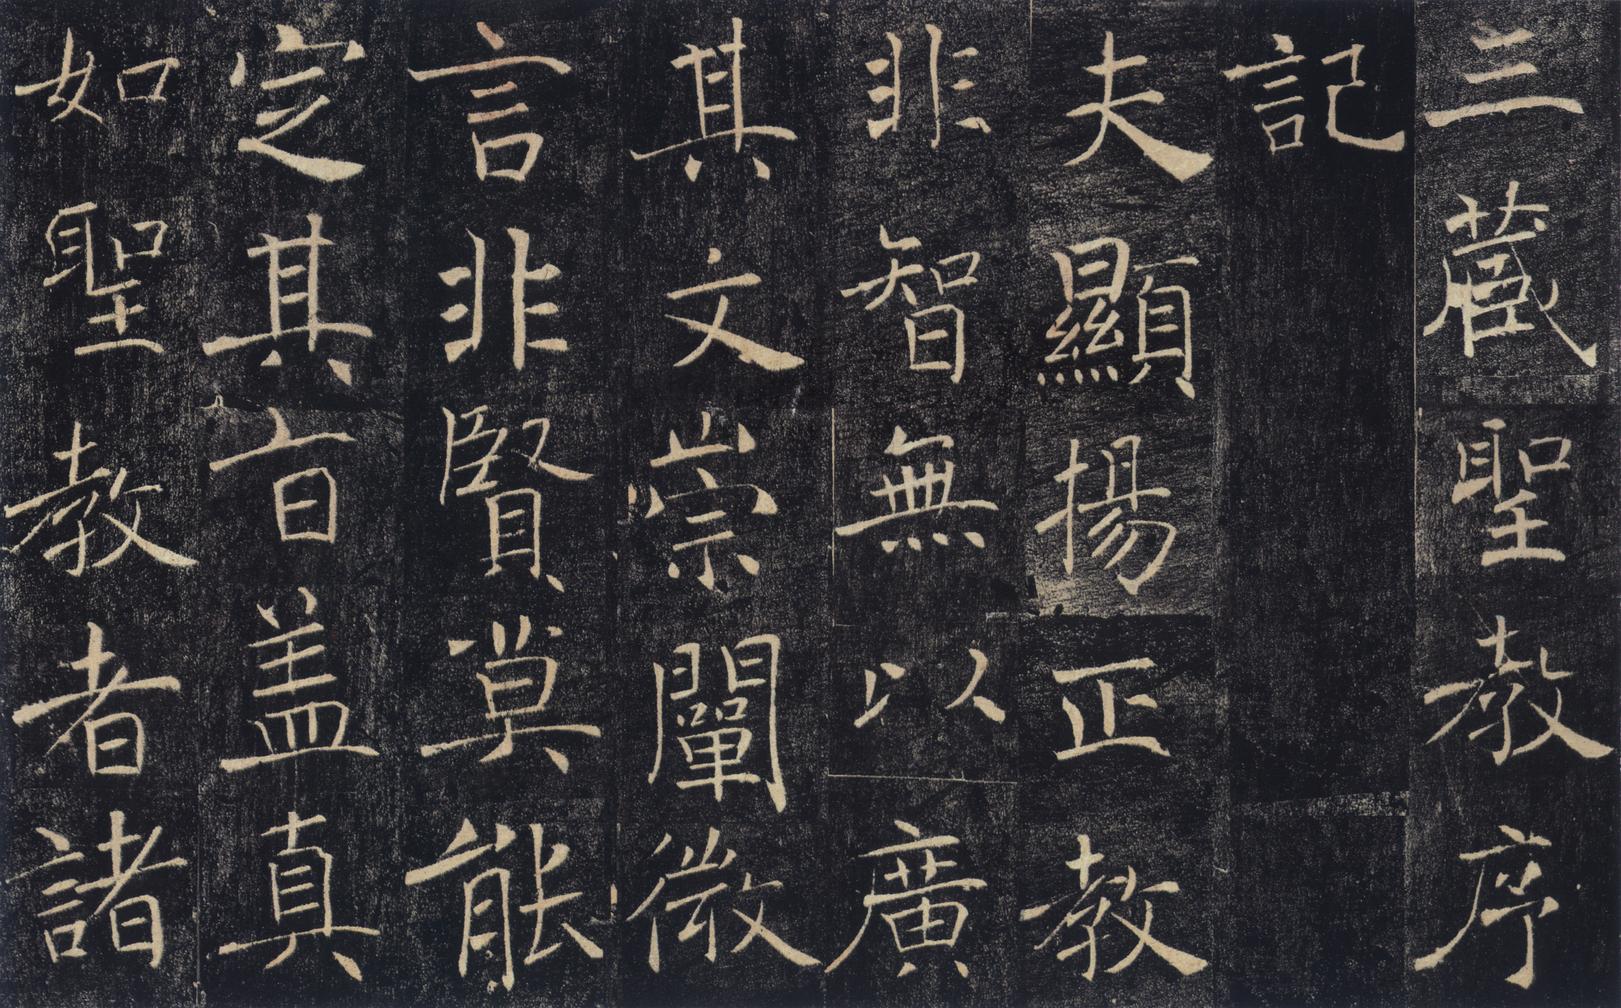 三藏聖教序
記
夫顯揚正教
非智無以廣
其文崇闡微
言非賢莫能
定其旨盖真
如聖教者諸